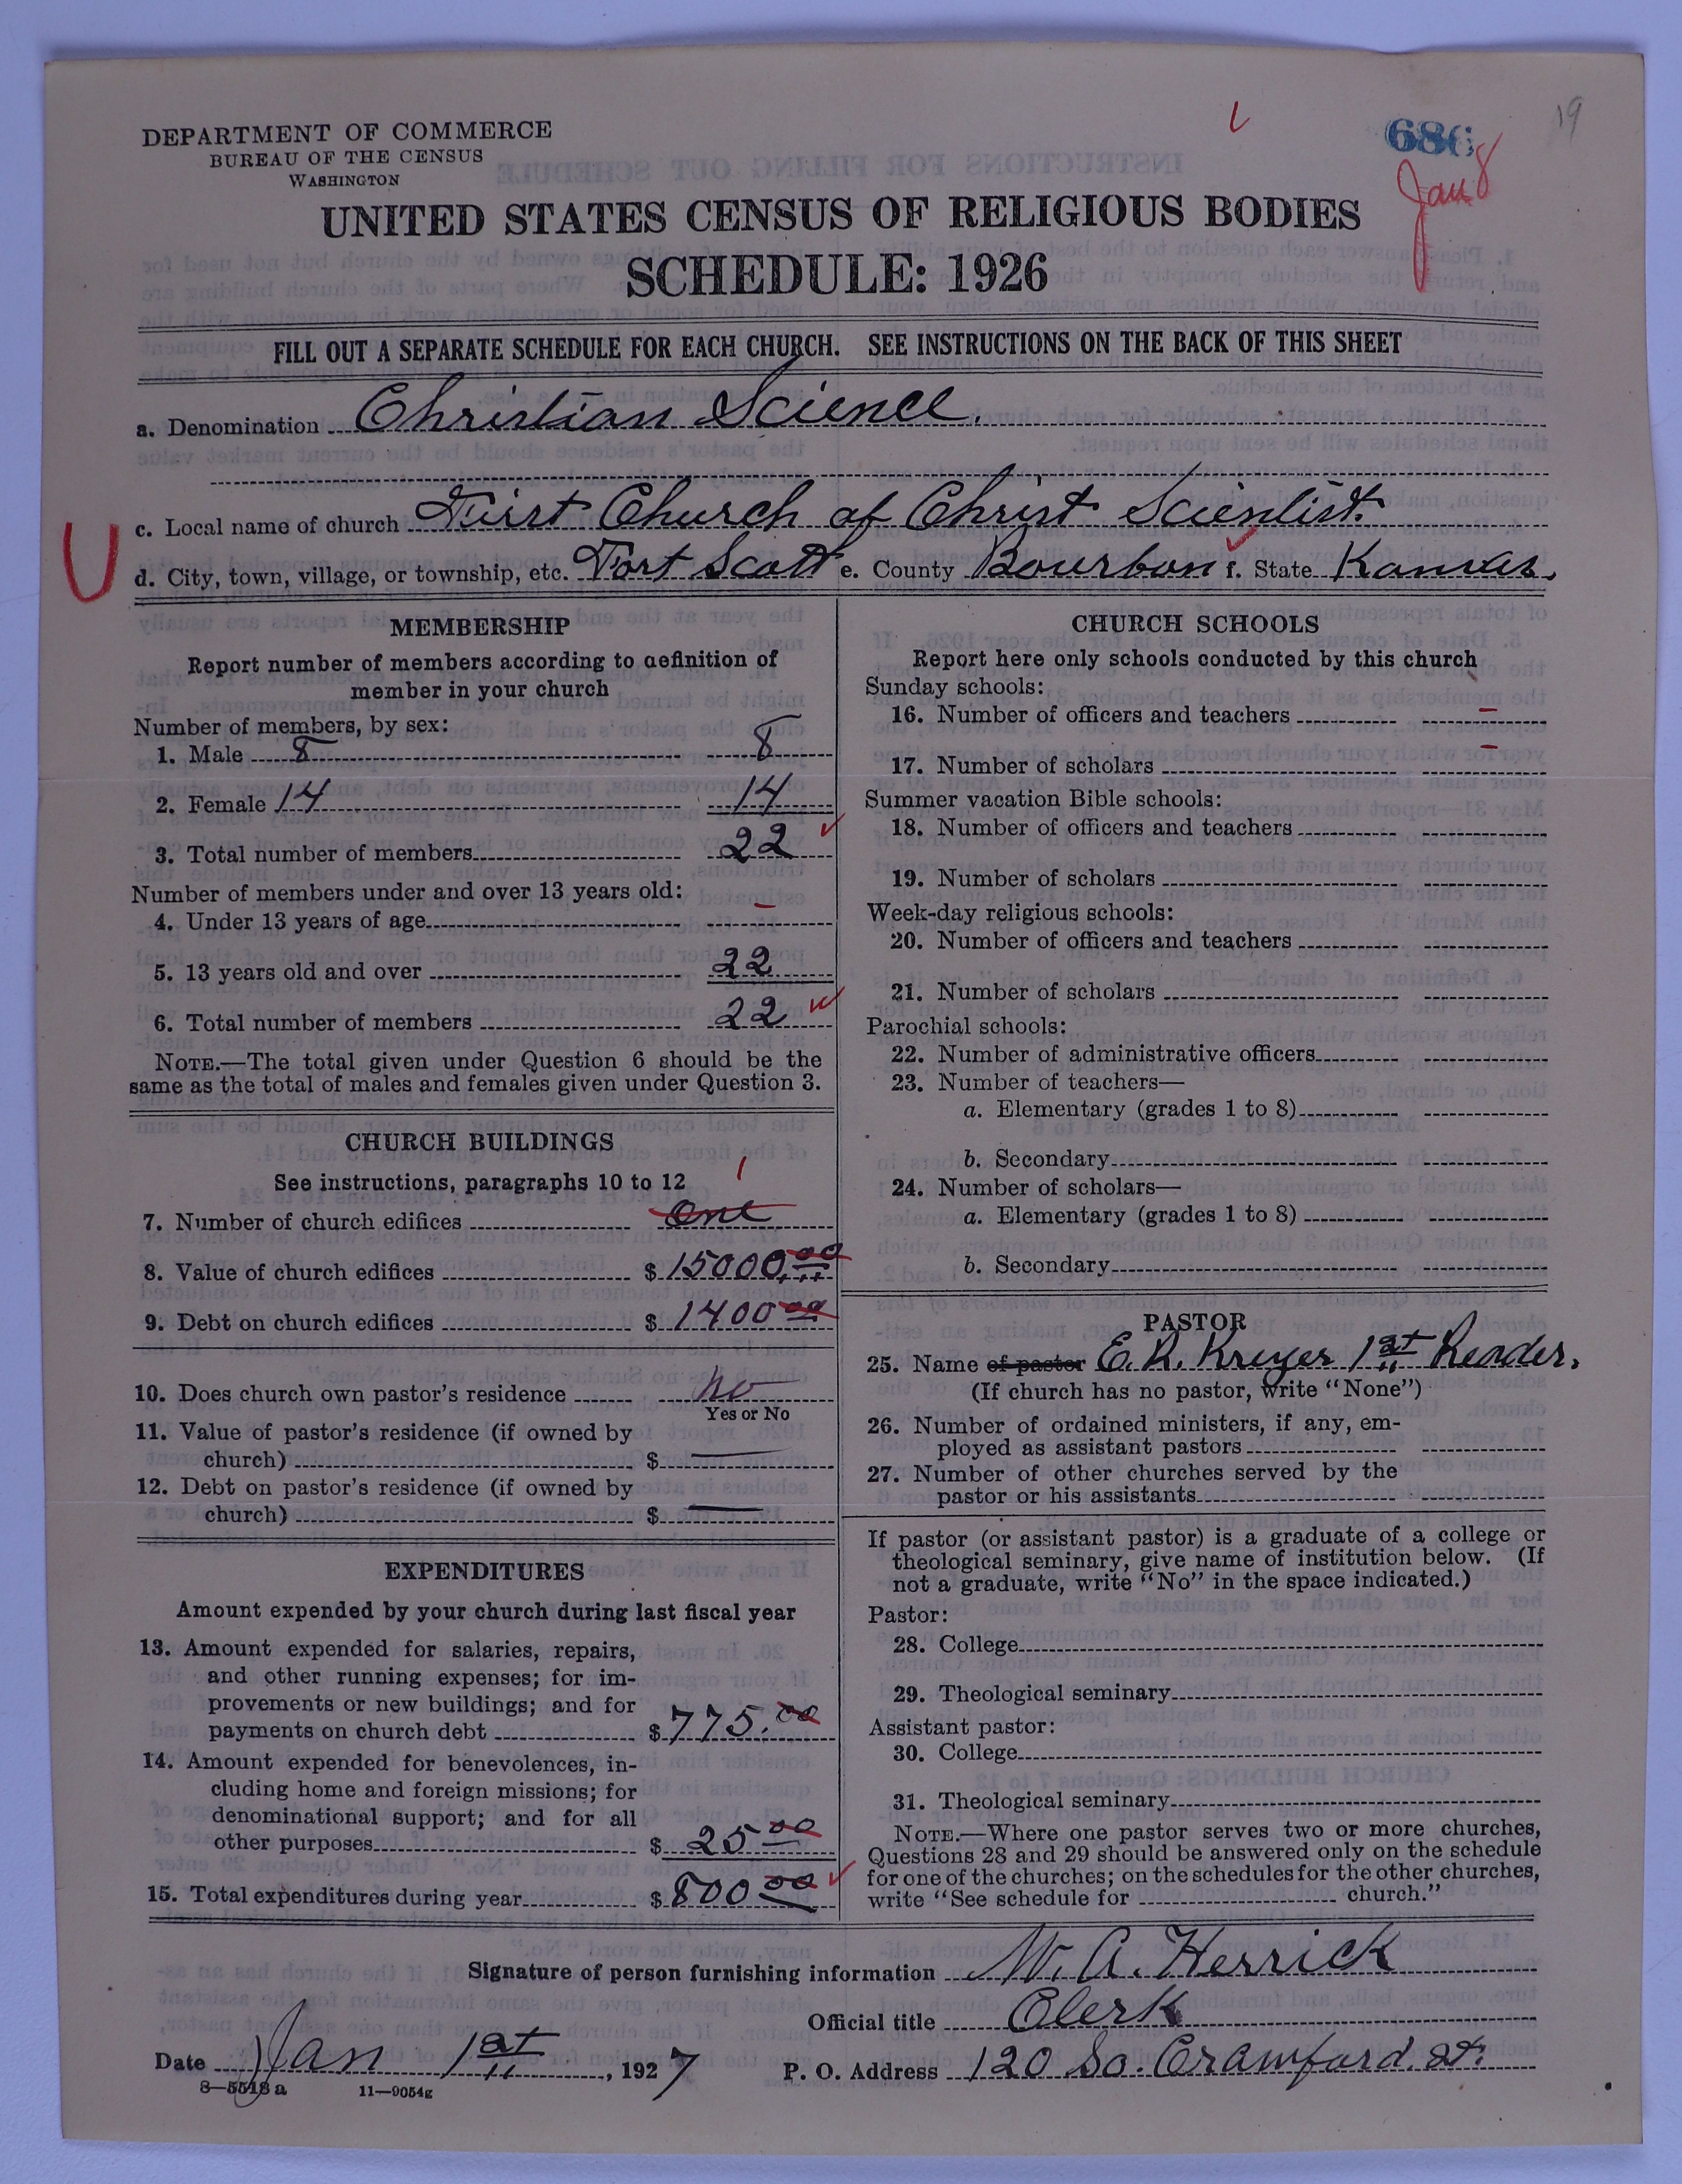 19
686
Jan 8
DEPARTMENT OF COMMERCE
BUREAU OF THE CENSUS
WASHINGTON
UNITED STATES CENSUS OF RELIGIOUS BODIES
SCHEDULE: 1926
FILL OUT A SEPARATE SCHEDULE FOR EACH CHURCH. SEE INSTRUCTIONS ON THE BACK OF THIS SHEET
a. Denomination Christian Science.
c. Local name of church First Church of Christ Scientist.
U
d. City, town, village, or township, etc. Fort Scott e. County Bourbon f. State Kansas.
MEMBERSHIP
Report number of members according to definition of
member in your church
Number of members, by sex:
1. Male 8 8
2. Female 14 14
3. Total number of members 22
Number of members under and over 13 years old:
4. Under 13 years of age -
5. 13 years old and over 22
6. Total number of members 22
NOTE.—The total given under Question 6 should be the
same as the total of males and females given under Question 3.
CHURCH BUILDINGS
See instructions, paragraphs 10 to 12
1
7. Number of church edifices One
8. Value of church edifices $ 15000.00
9. Debt on church edifices $ 1400 00
10. Does church own pastor's residence No
Yes or No
11. Value of pastor's residence (if owned by
church) $ —
12. Debt on pastor's residence (if owned by
church) $ —
EXPENDITURES
Amount expended by your church during last fiscal year
13. Amount expended for salaries, repairs,
and other running expenses; for im-
provements or new buildings; and for
payments on church debt $ 775.00
14. Amount expended for benevolences, in-
cluding home and foreign missions; for
denominational support; and for all
other purposes $ 25 00
15. Total expenditures during year $ 800 00
CHURCH SCHOOLS
Report here only schools conducted by this church
Sunday schools:
16. Number of officers and teachers -
17. Number of scholars -
Summer vacation Bible schools:
18. Number of officers and teachers
19. Number of scholars
Week-day religious schools:
20. Number of officers and teachers
21. Number of scholars
Parochial schools:
22. Number of administrative officers
23. Number of teachers—
a. Elementary (grades 1 to 8)
b. Secondary
24. Number of scholars—
a. Elementary (grades 1 to 8)
b. Secondary
PASTOR
25. Name of pastor E. R. Kreyer 1st Reader.
(If church has no pastor, write "None")
26. Number of ordained ministers, if any, em-
ployed as assistant pastors
27. Number of other churches served by the
pastor or his assistants
If pastor (or assistant pastor) is a graduate of a college or
theological seminary, give name of institution below. (If
not a graduate, write "No" in the space indicated.)
Pastor:
28. College
29. Theological seminary
Assistant pastor:
30. College
31. Theological seminary
NOTE.—Where one pastor serves two or more churches,
Questions 28 and 29 should be answered only on the schedule
for one of the churches; on the schedules for the other churches,
write "See schedule for church."
Signature of person furnishing information W. A. Herrick
Official title Clerk
Date Jan 1st, 1927 P. O. Address 120 So. Crawford. St.
8—5518 a 11—9054g